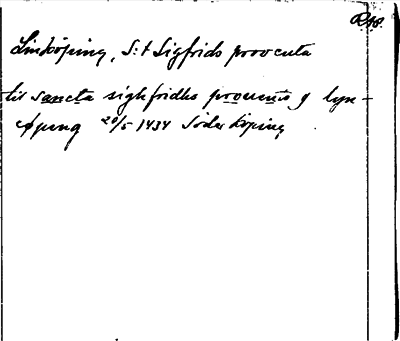 Rap.
Linköping, S:t Sigfrids proventa
til sancta sighfridhs prouento j lyn-
køpung 20/5 1434 Söderköping